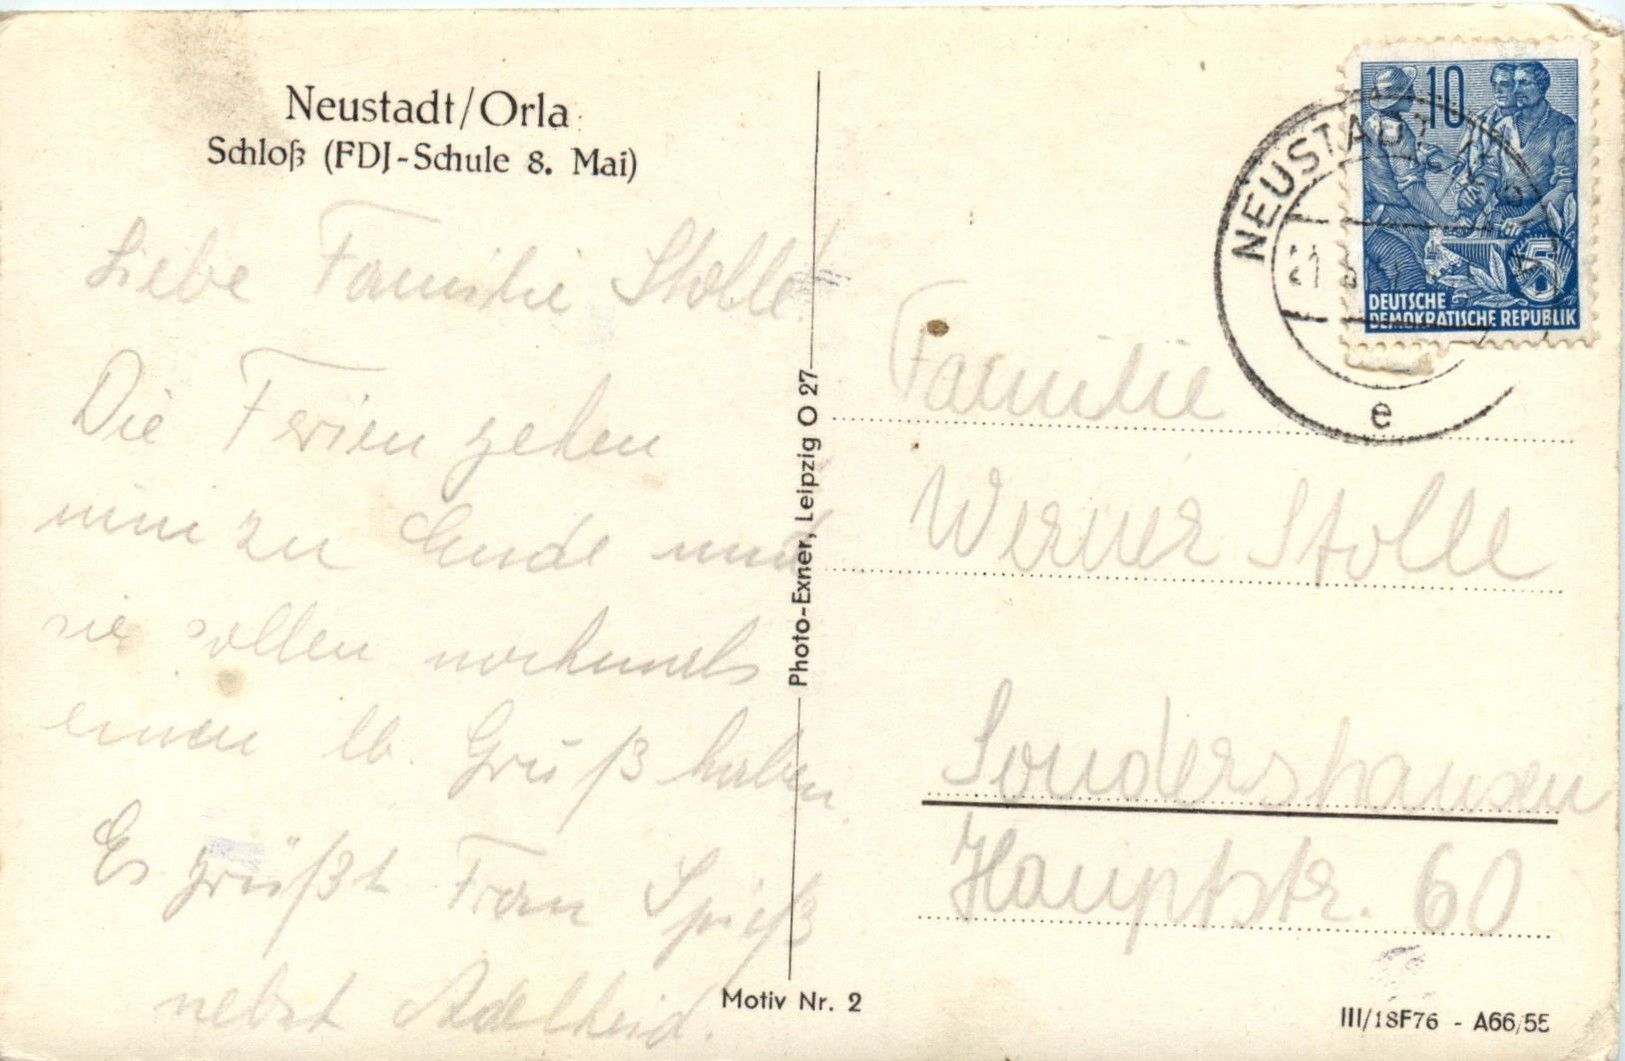 Neustadt/Orla
Schloß (FDJ-Schule 8. Mai)
Liebe Familie Stolle!
Die Ferien gehen
nun zu Ende und
sie sollen nochmals
einen lb. Gruß haben.
Es grüßt Frau Spieß
nebst Adelheid.
Photo-Exner, Leipzig O 27
Motiv Nr. 2
NEUSTADT
e
10
5
DEUTSCHE
DEMOKRATISCHE REPUBLIK
Familie
Werner Stolle
Sondershausen
Hauptstr. 60
III/18F76 - A66/55